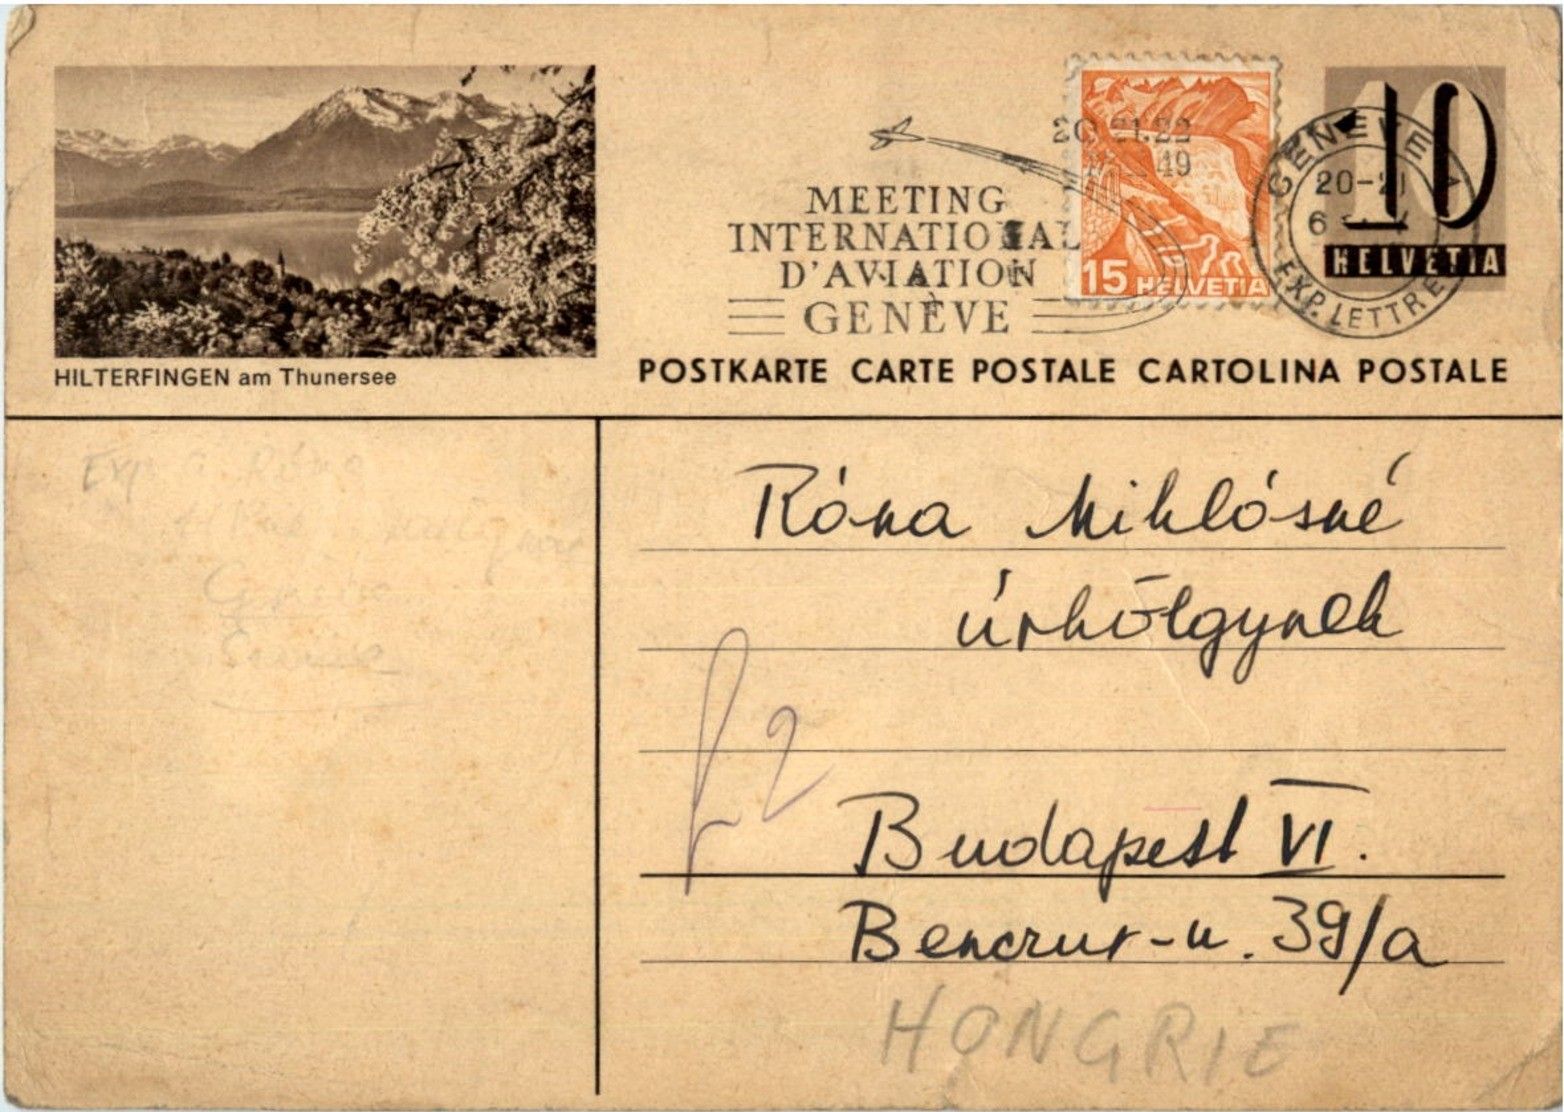 HILTERFINGEN am Thunersee
20.21.22
49
MEETING
INTERNATIONAL
D'AVIATION
GENÈVE
15 HELVETIA
10
HELVETIA
GENÈVE 1
20-21
6
EXP. LETTRE
POSTKARTE CARTE POSTALE CARTOLINA POSTALE
Exp Róna
Róna Miklósné
úrhölgynek
Budapest VI.
Benczur-u. 39/a
HONGRIE